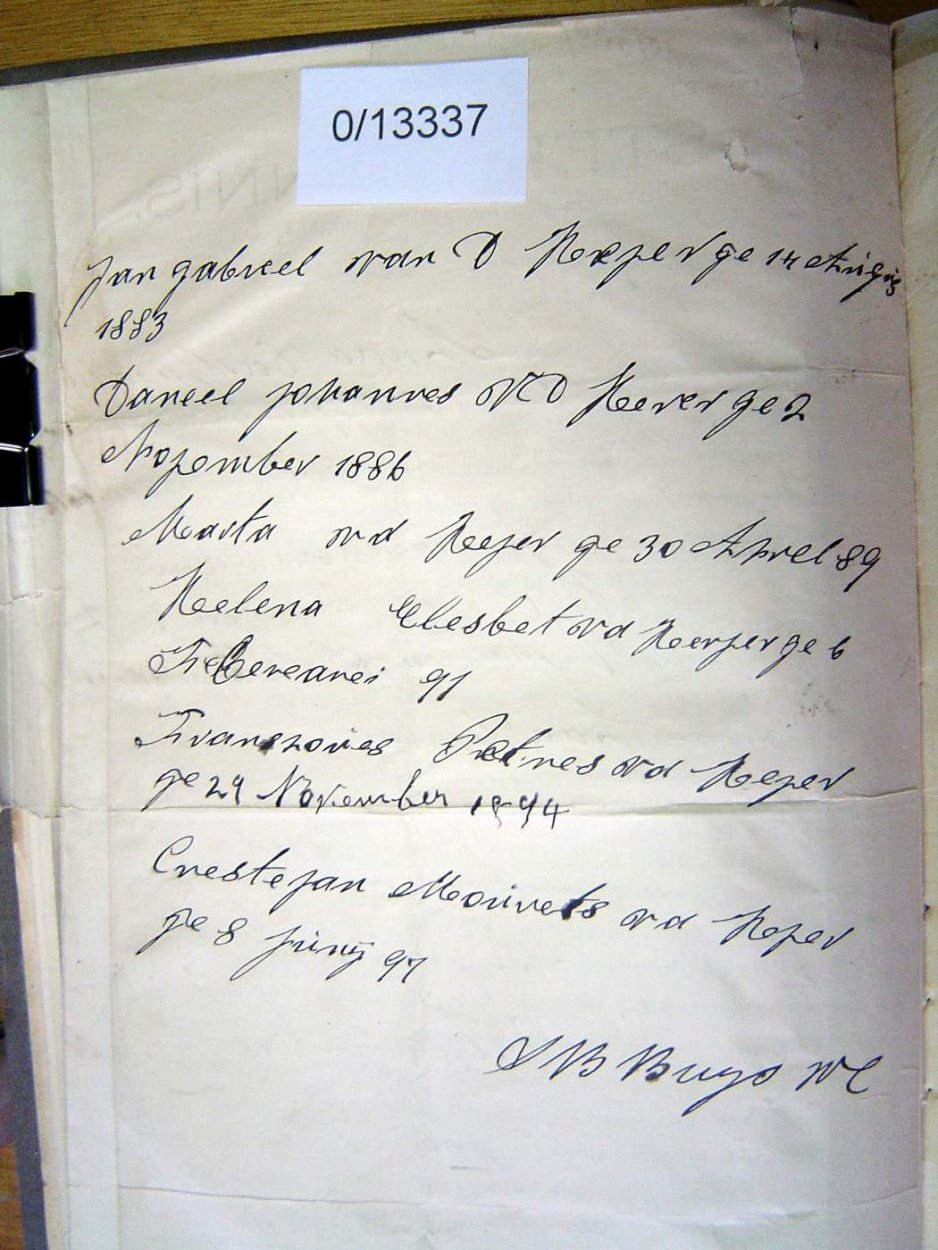 0/13337
Jan gabriel van D Heeyer ge 14 Augus
1883
Daneel johannes VD Hever ge 2
November 1886
Marta vd Heyer ge 30 Aprel 89
Helena Elesbet vd Heeyer ge 6
Feberearei 91
Fransories Petres vd Heyer
ge 29 November 1894
Crestejan Mourets vd Heyer
ge 8 junij 97